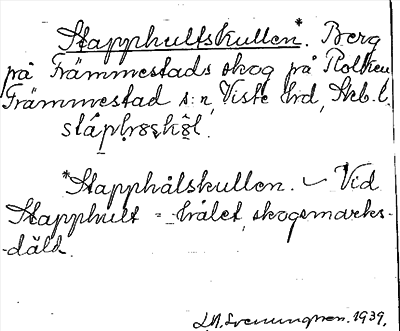 Stapphultskullen*. Berg
på Främmestads skog på Rolken
Främmestad s:n, Viste hrd, Skb. l.
*Stapphålskullen. – Vid
Stapphult = -hålet, skogsmarks-
-däld.
1939.